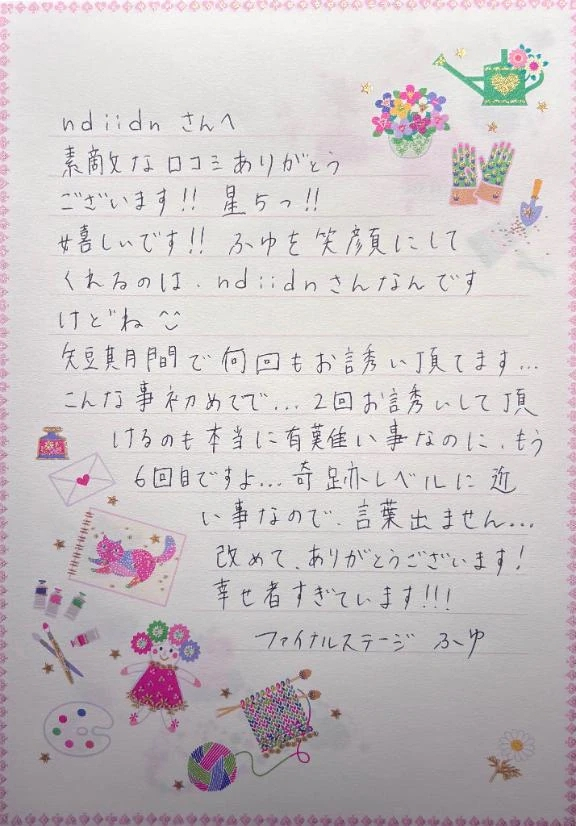 ndiidn さんへ
素敵な口コミありがとう
ございます!! 星5つ!!
嬉しいです!! ふゆを笑顔にして
くれるのは、ndiidnさんなんです
けどね^^
短期間で何回もお誘い頂てます...
こんな事初めてで...2回お誘いして頂
けるのも本当に有難い事なのに、もう
6回目ですよ...奇跡レベルに近
い事なので、言葉出ません...
改めて、ありがとうございます!
幸せ者すぎています!!!
ファイナルステージ ふゆ